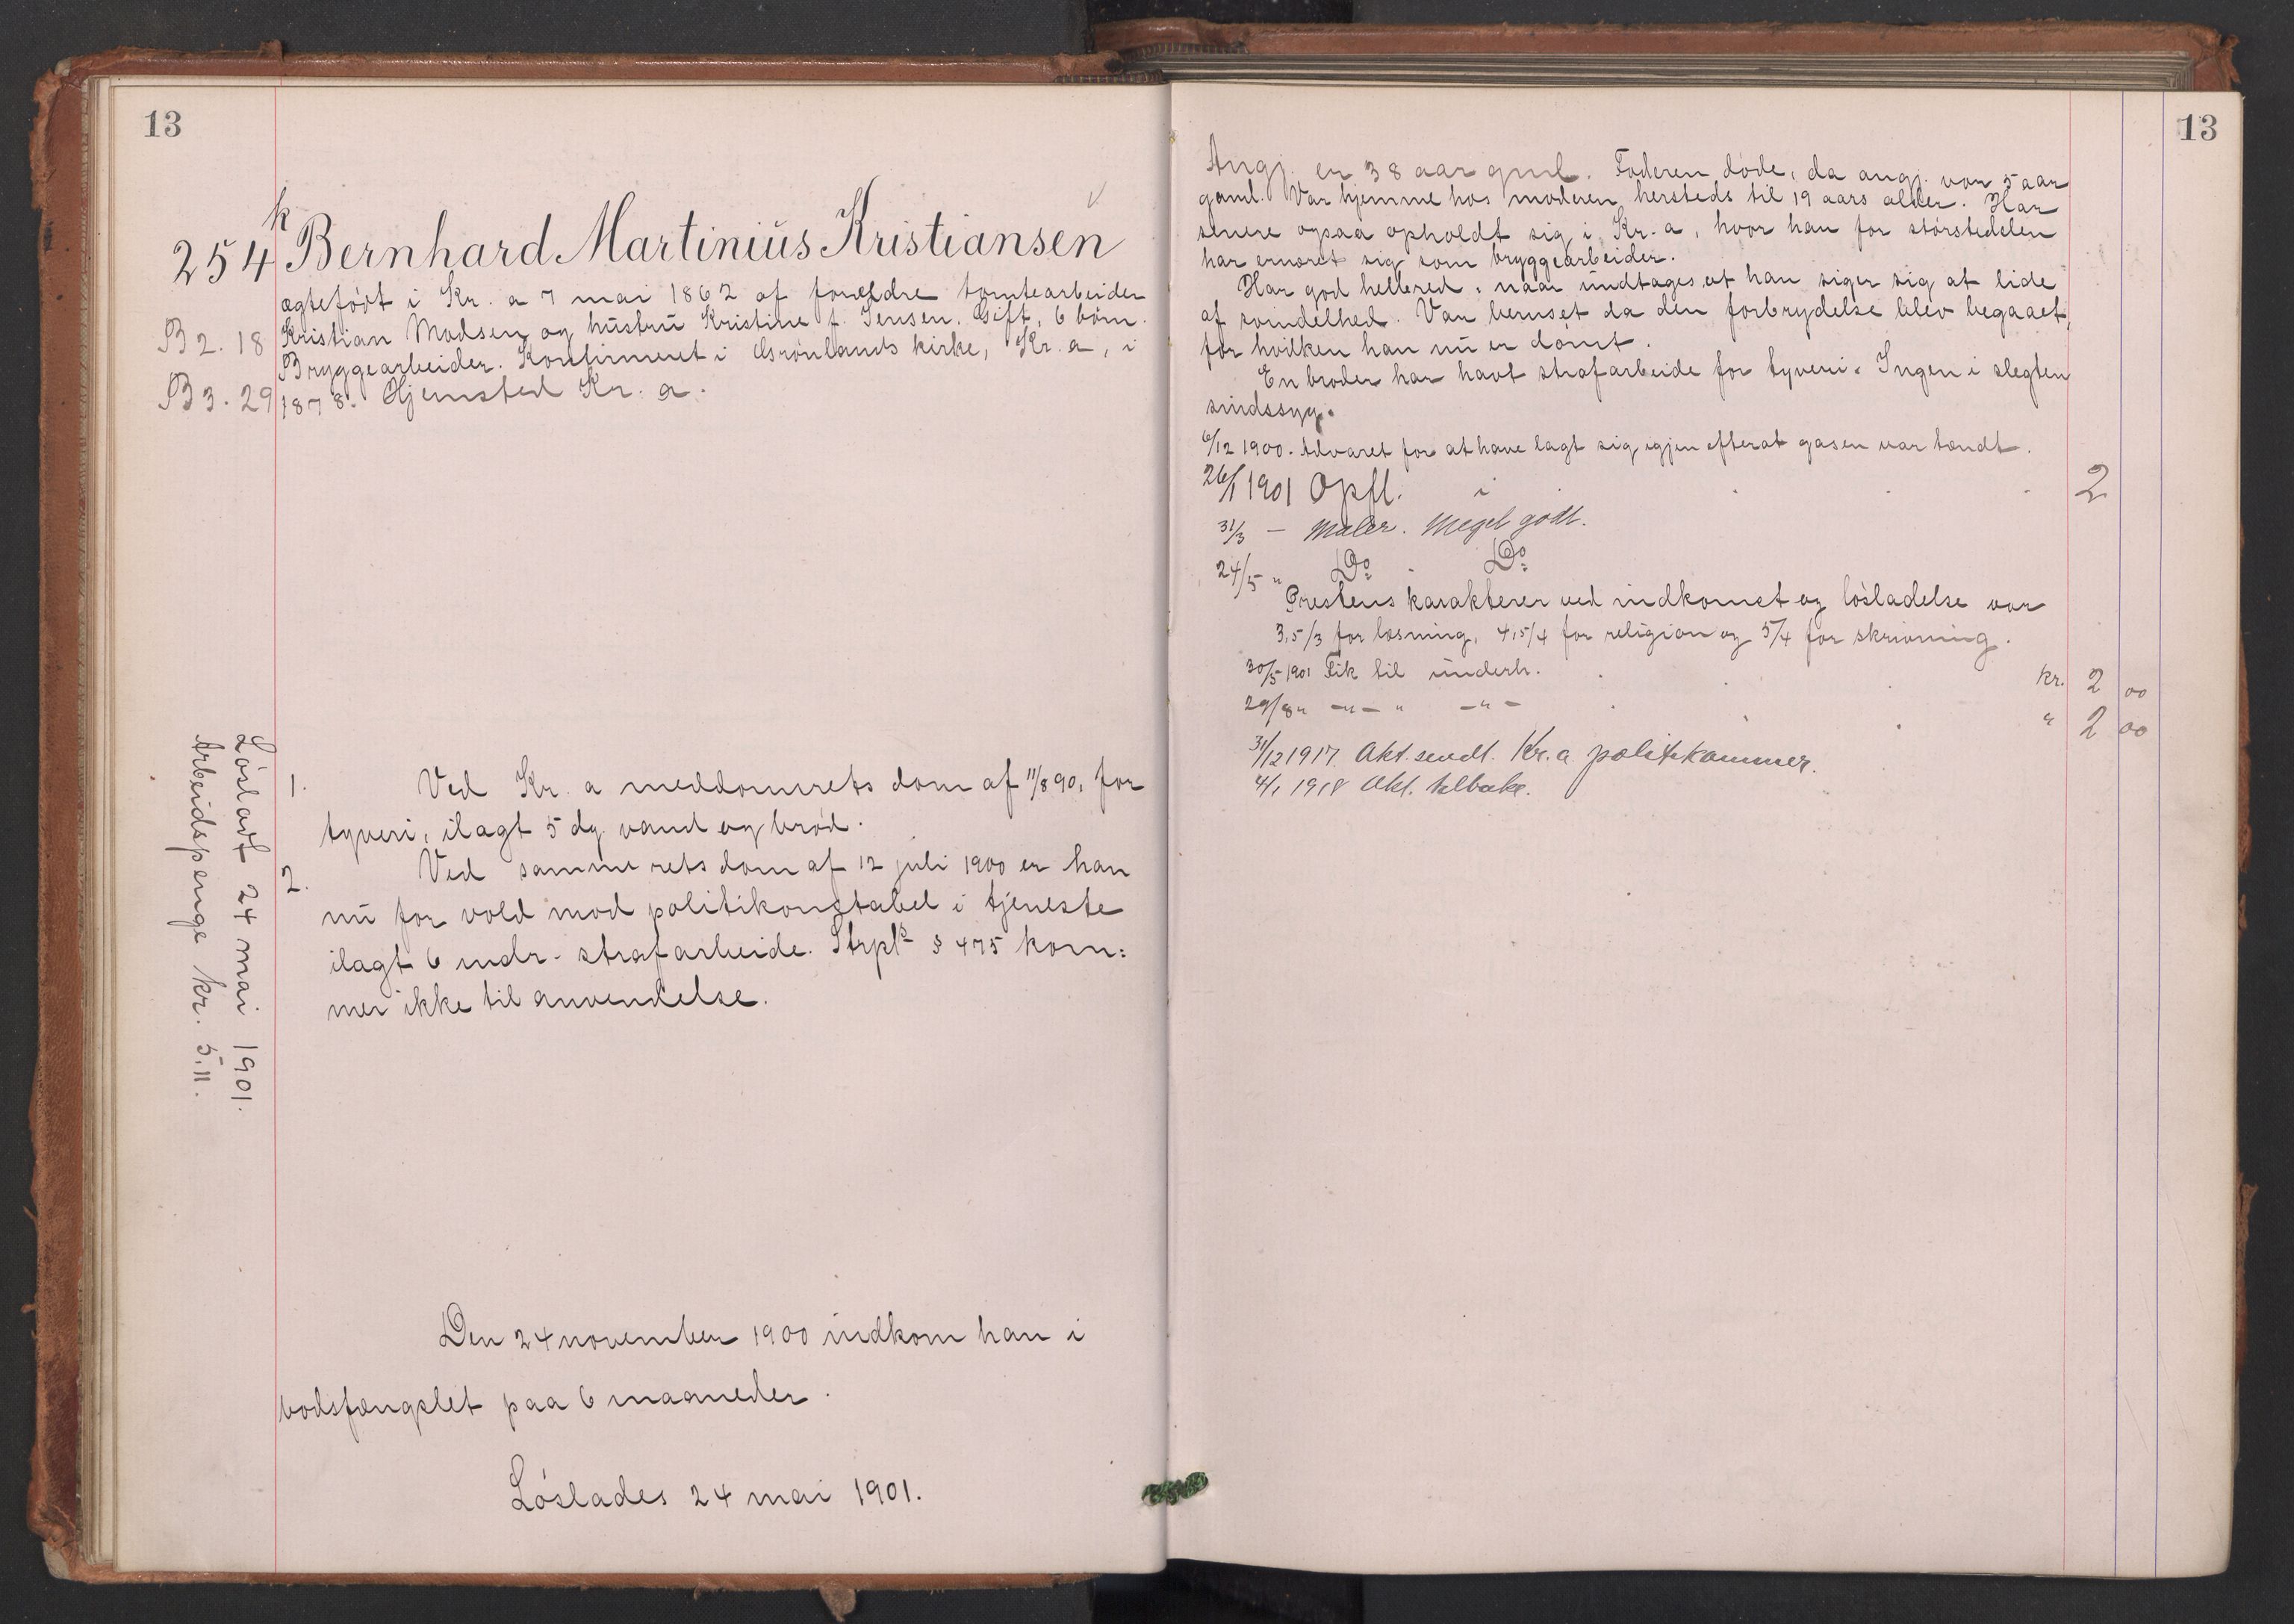 13
k
254 Bernhard Martinius Kristiansen
ægtefødt i Kr. a 7 mai 1862 af forældre tomtearbeider
B 2. 18 Kristian Madsen og hustru Kristine f. Jensen. Gift, 6 børn.
Bryggearbeider. Konfirmeret i Grønlands kirke, Kr. a, i
B 3. 29 1878. Hjemsted Kr. a.
1. Ved Kr. a meddomsrets dom af 11/8 90, for
tyveri, ilagt 5 dg. vand og brød.
2. Ved samme rets dom af 12 juli 1900 er han
nu for vold mod politikonstabel i tjeneste
ilagt 6 mdr. strafarbeide. Strpl § 475 kom:
mer ikke til anvendelse.
Løsladt 24 mai 1901.
Arbeidspenge kr. 5.11.
Den 24 november 1900 indkom han i
bodsfængslet paa 6 maaneder.
Løslades 24 mai 1901.
13
Angj. er 38 aar gml. Faderen døde, da angj. var 5 aar
gaml. Var hjemme hos moderen hersteds til 19 aars alder. Har
senere ogsaa opholdt sig i Kr. a, hvor han for størstedelen
har ernæret sig som bryggearbeider.
Har god helbred, naar undtages at han siger sig at lide
af svindelhed. Var beruset da den forbrydelse blev begaaet,
for hvilken han nu er dømt.
En broder har havt strafarbeide for tyveri. Ingen i slegten
sindssyg.
6/12 1900. Advaret for at have lagt sig igjen efterat gasen var tændt.
26/1 1901 Opfl. i 2
31/3 — Maler. Meget godt.
24/5 " Do Do
Prestens karakterer ved indkomst og løsladelse var
3,5/3 for læsning, 4,5/4 for religion og 5/4 for skrivning.
30/5 1901 Fik til underh. kr. 2 00
29/8 " —"— " —"— " 2 00
31/12 1917. Akt. sendt. Kr. a politikammer.
4/1 1918 Akt. tilbake.